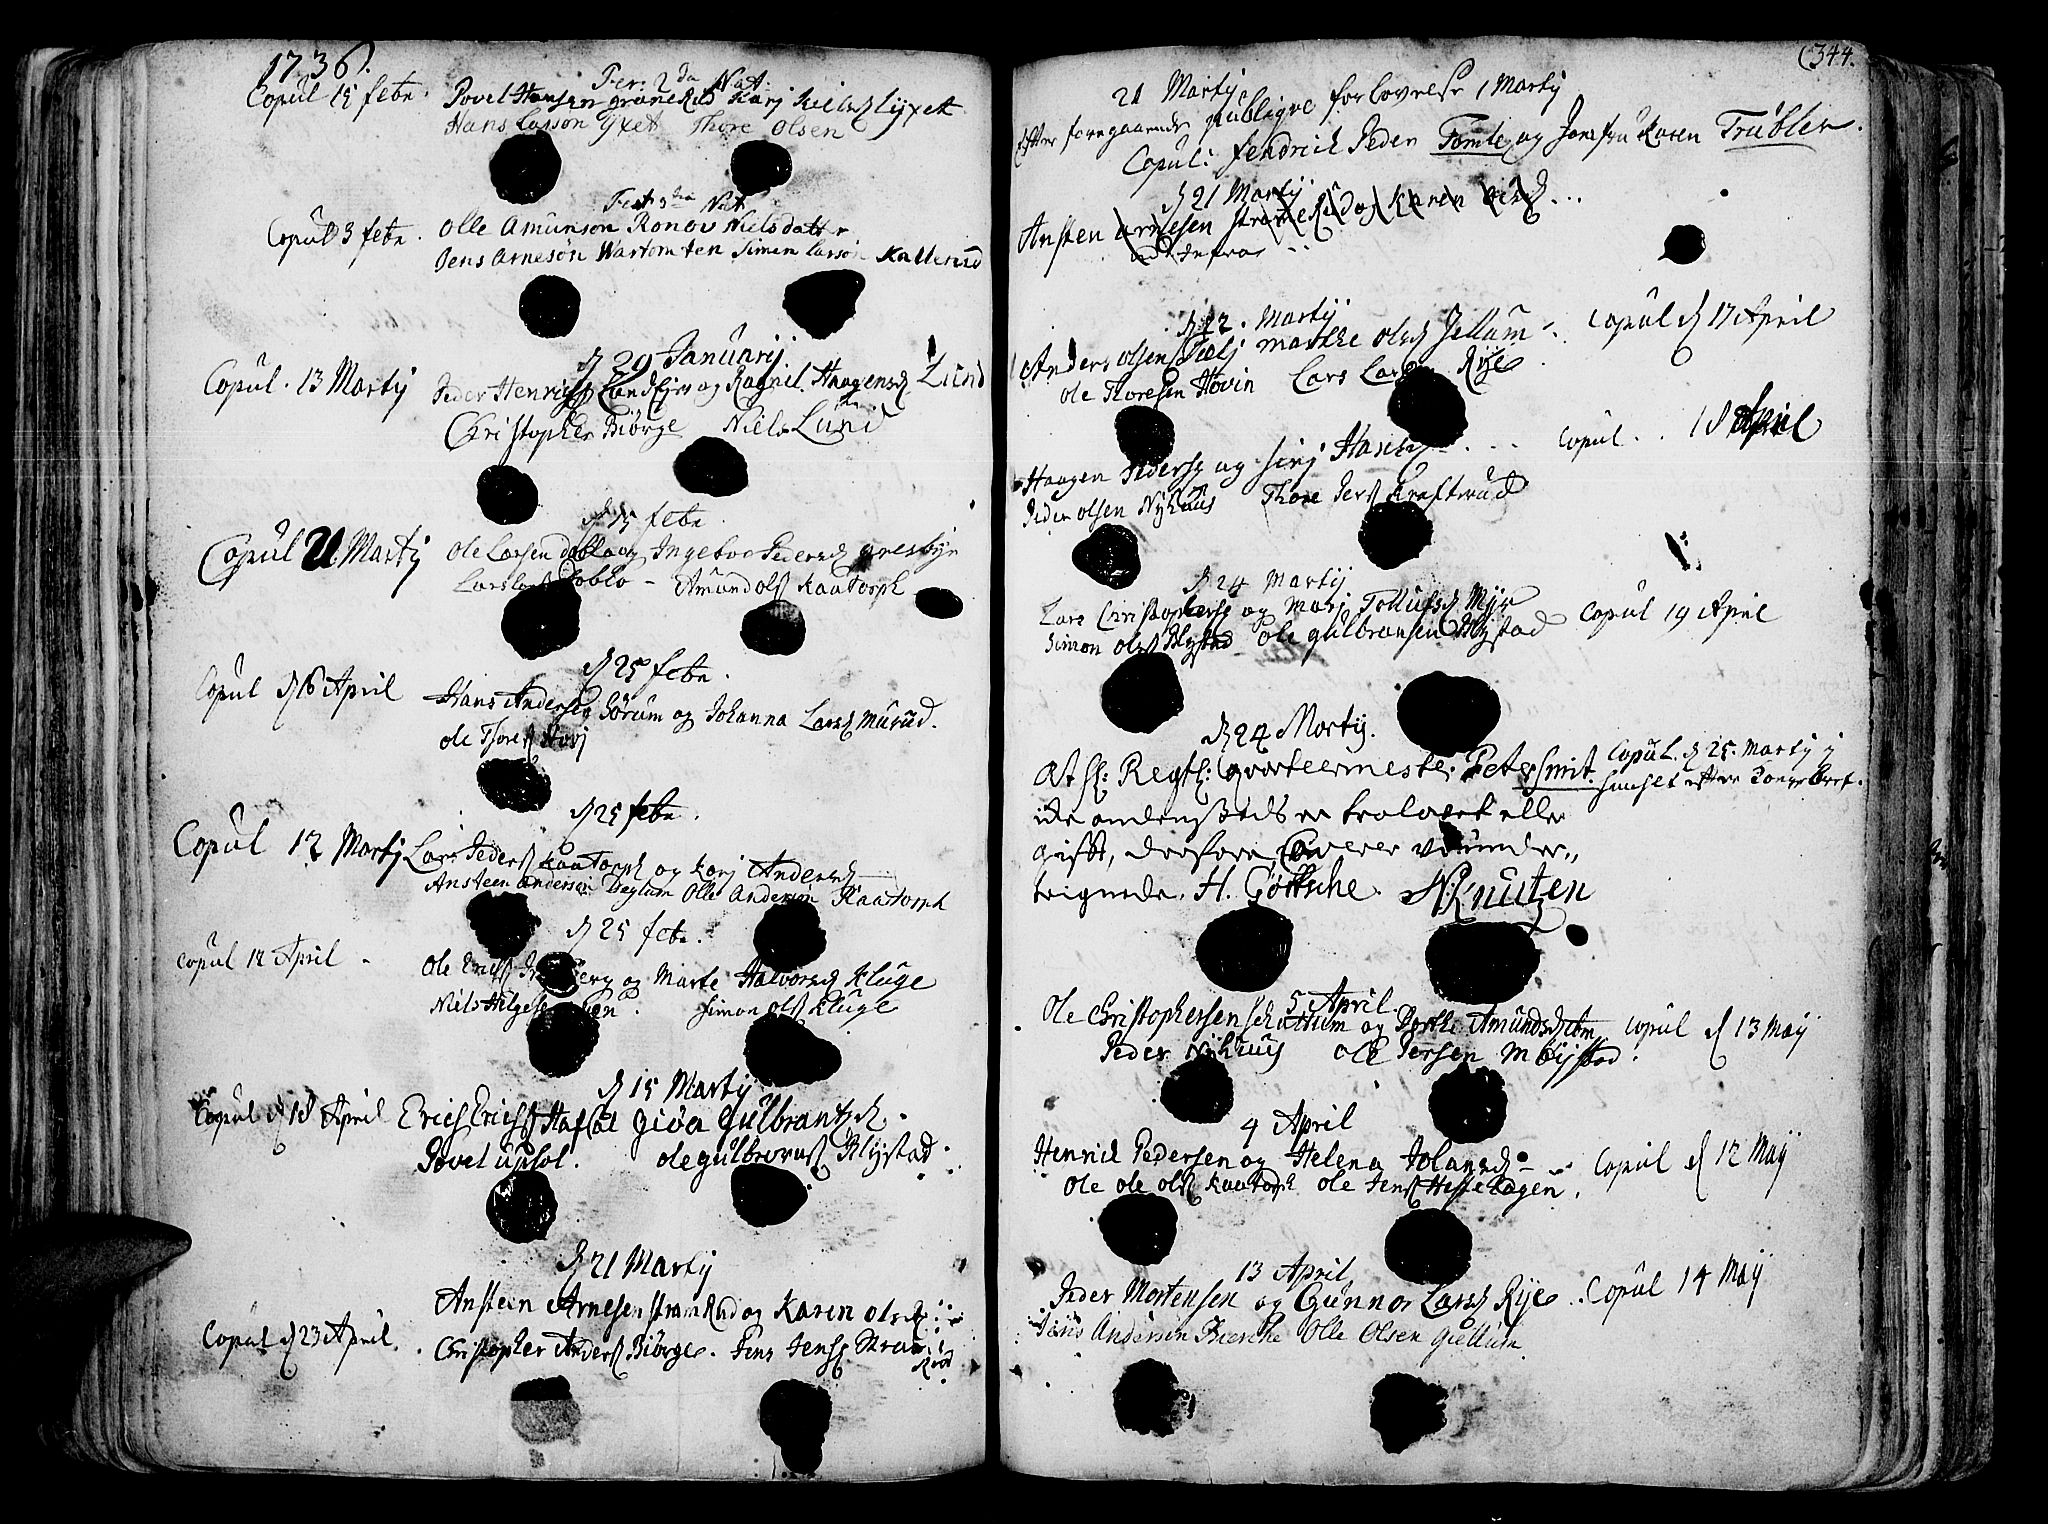 1736.
Fer: 2da Nat:
Copul 15 febr. Povel Hansen Kari Nielsd lyset
Hans Larson Thore Olsen
Fest 3tia Nat
Copul 3 febr. Olle Amunson Ronov Nielsdatter
Jens Arneson Wartomten Simen Larson Kallerud
d 29 Januarij
Copul. 13 Martij Peder Henrichs og Ragnil. Haagensd. Lund
Christopher Biørge Niels Lund
d 15 febr.
Copul 21 Martij Ole Larsen Dobloug Ingebor Pedersd
Lars Amund Ols Kaatorph
d 25 febr.
Copul d 6 April Hans Anderss Sørum og Johanna Larsd Murud.
ole Thores Hovj
d 25 febr.
Copul 12 Martij Lars Peders Kaatorph og Karj Andersd
Ansteen Andersen Deglum Olle Andersøn Kaatorph
d 25 febr.
Copul 12 April Ole Erichs og Marte Halvorsd Kluge
Niels Helges Simon Ols Kluge
d 15 Martij
Copul d 18 April Erich Erichs Hafsal Giøa Gulbrantzd.
Povel upsol. ole Gulbrans Blystad
d 21 Martij
Ansteen Arnesen stramRud og Karen olsd
Copul d 23 April. Christopher Anders Biørge. Jens Jenss Stram
Rud
344.
21 Martij
Efter foregaaende publiqve forlovelse 1 Martij
Copul: Hendrich Peder Tomle og Jomfru Karen Trubler.
d 21 Martij
Ansten Arnesen stramRud og Karen olsd...
vid Infra
d 12. Martij
Anders olsen marthe olsd Jellum Copul d 17 April
Ole Thoresen Hovin Lars Rye
Haagen Peders og Sirj Hansd Copul.. 18 April
Peder olsen Nyhuus Thore Pers Kraftrud
d 24 Martij
Lars Christophers og Marj Tollufsd Myr Copul 19 April
Simon ols Blystad ole Gulbransen Blystad
d 24 Martij.
At Sr: Regts: qvarteermester Peter Smit Copul. d 25. Martij
iche andenstæds er trolovet eller
gifft, derfore Caverer vi under,,
tegnede. H. Göttsche. Knutzen
5 April
Ole Christophersen og Marthe Amundsd Copul d 13 Maij
Peder Nyhuus Ole Persen
4 April
Henrich Pedersen og Helena Copul d 12 Maij
Ole ole ols Kaatorph ole Jens Hestehagen.
13 April
Peder Mortensen og Gunnor Larsd Rye.. Copul 14 Maij
Jens Andersen Bierche Olle Olsen Giellum